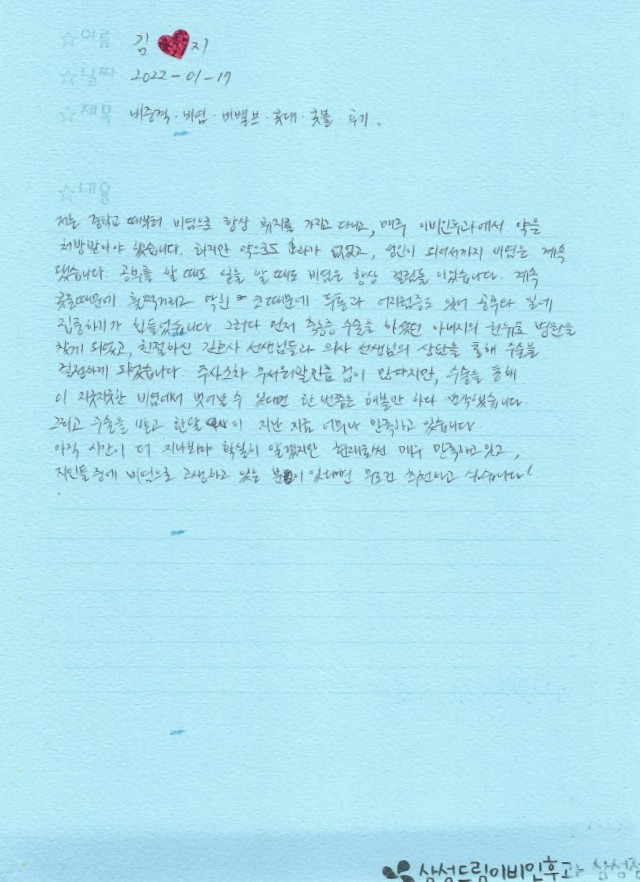 ☆이름 김 지
☆날짜 2022-01-17
☆제목 비중격·비염·비밸브·콧대·콧볼 후기.
☆내용
저는 중학교 때부터 비염으로 항상 휴지를 가지고 다니고, 매주 이비인후과에서 약을
처방받아야 했습니다. 하지만 약으로도 효과가 없었고, 성인이 되어서까지 비염은 계속
됐습니다. 공부를 할 때도 일을 할 때도 비염은 항상 걸림돌이었습니다. 계속
콧물때문에 훌쩍거리고 막힌 코때문에 두통과 어지럼증도 있어 공부와 일에
집중하기가 힘들었습니다. 그러다 먼저 수술을 하셨던 아버지의 권유로 병원을
찾게 되었고, 친절하신 간호사 선생님들과 의사 선생님의 상담을 통해 수술을
결정하게 되었습니다. 주사조차 무서워할만큼 겁이 많았지만, 수술을 통해
이 지긋지긋한 비염에서 벗어날 수 있다면 한 번쯤은 해볼만 하다 생각했습니다.
그리고 수술을 받고 한달 이 지난 지금 너무나 만족하고 있습니다.
아직 시간이 더 지나봐야 확실히 알겠지만 현재로썬 매우 만족하고 있고,
지인들 중에 비염으로 고생하고 있는 분이 있다면 무조건 추천하고 싶습니다!
삼성드림이비인후과 삼성정